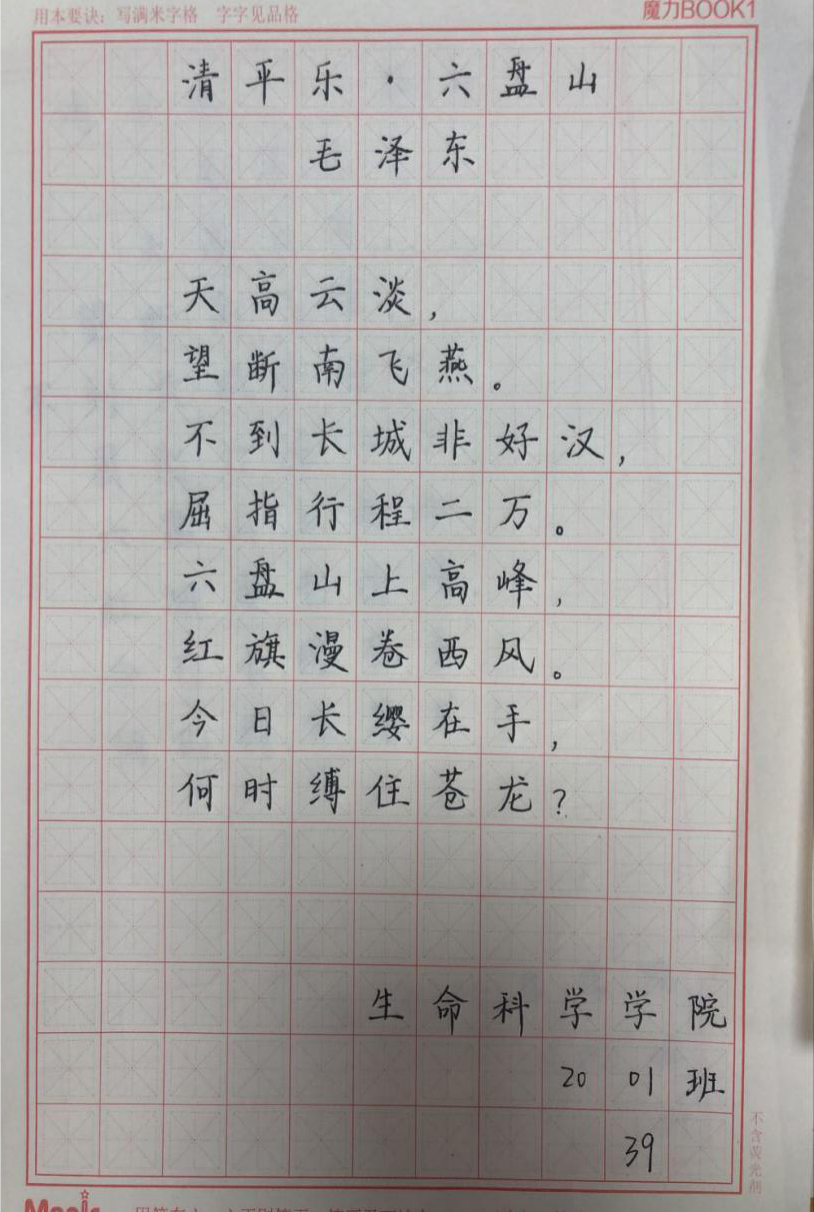 用本要诀：写满米字格 字字见品格
魔力BOOK1
清平乐·六盘山
毛泽东
天高云淡，
望断南飞燕。
不到长城非好汉，
屈指行程二万。
六盘山上高峰，
红旗漫卷西风。
今日长缨在手，
何时缚住苍龙？
生命科学学院
2001班
39
不含荧光剂